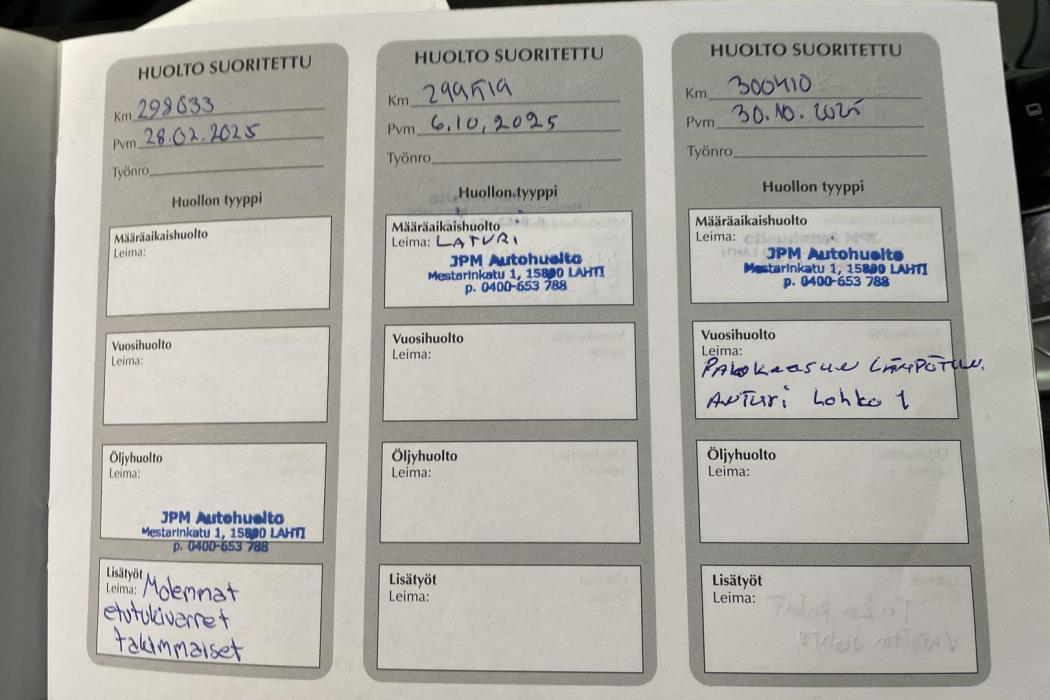 HUOLTO SUORITETTU
Km 298633
Pvm 28.02.2025
Työnro
Huollon tyyppi
Määräaikaishuolto
Leima:
Vuosihuolto
Leima:
Öljyhuolto
Leima:
JPM Autohuolto
Mestarinkatu 1, 15800 LAHTI
p. 0400-653 788
Lisätyöt
Leima: Molemmat
etutukivarret
takimmaiset
HUOLTO SUORITETTU
Km
Pvm 6.10.2025
Työnro
Huollon tyyppi
Määräaikaishuolto
Leima: LATURI
JPM Autohuolto
Mestarinkatu 1, 15800 LAHTI
p. 0400-653 788
Vuosihuolto
Leima:
Öljyhuolto
Leima:
Lisätyöt
Leima:
HUOLTO SUORITETTU
Km 300410
Pvm 30.10.2025
Työnro
Huollon tyyppi
Määräaikaishuolto
Leima:
JPM Autohuolto
Mestarinkatu 1, 15800 LAHTI
p. 0400-653 788
Vuosihuolto
Leima:
Pakokaasun LÄMPÖTUN.
ANTURI Lohko 1
Öljyhuolto
Leima:
Lisätyöt
Leima: